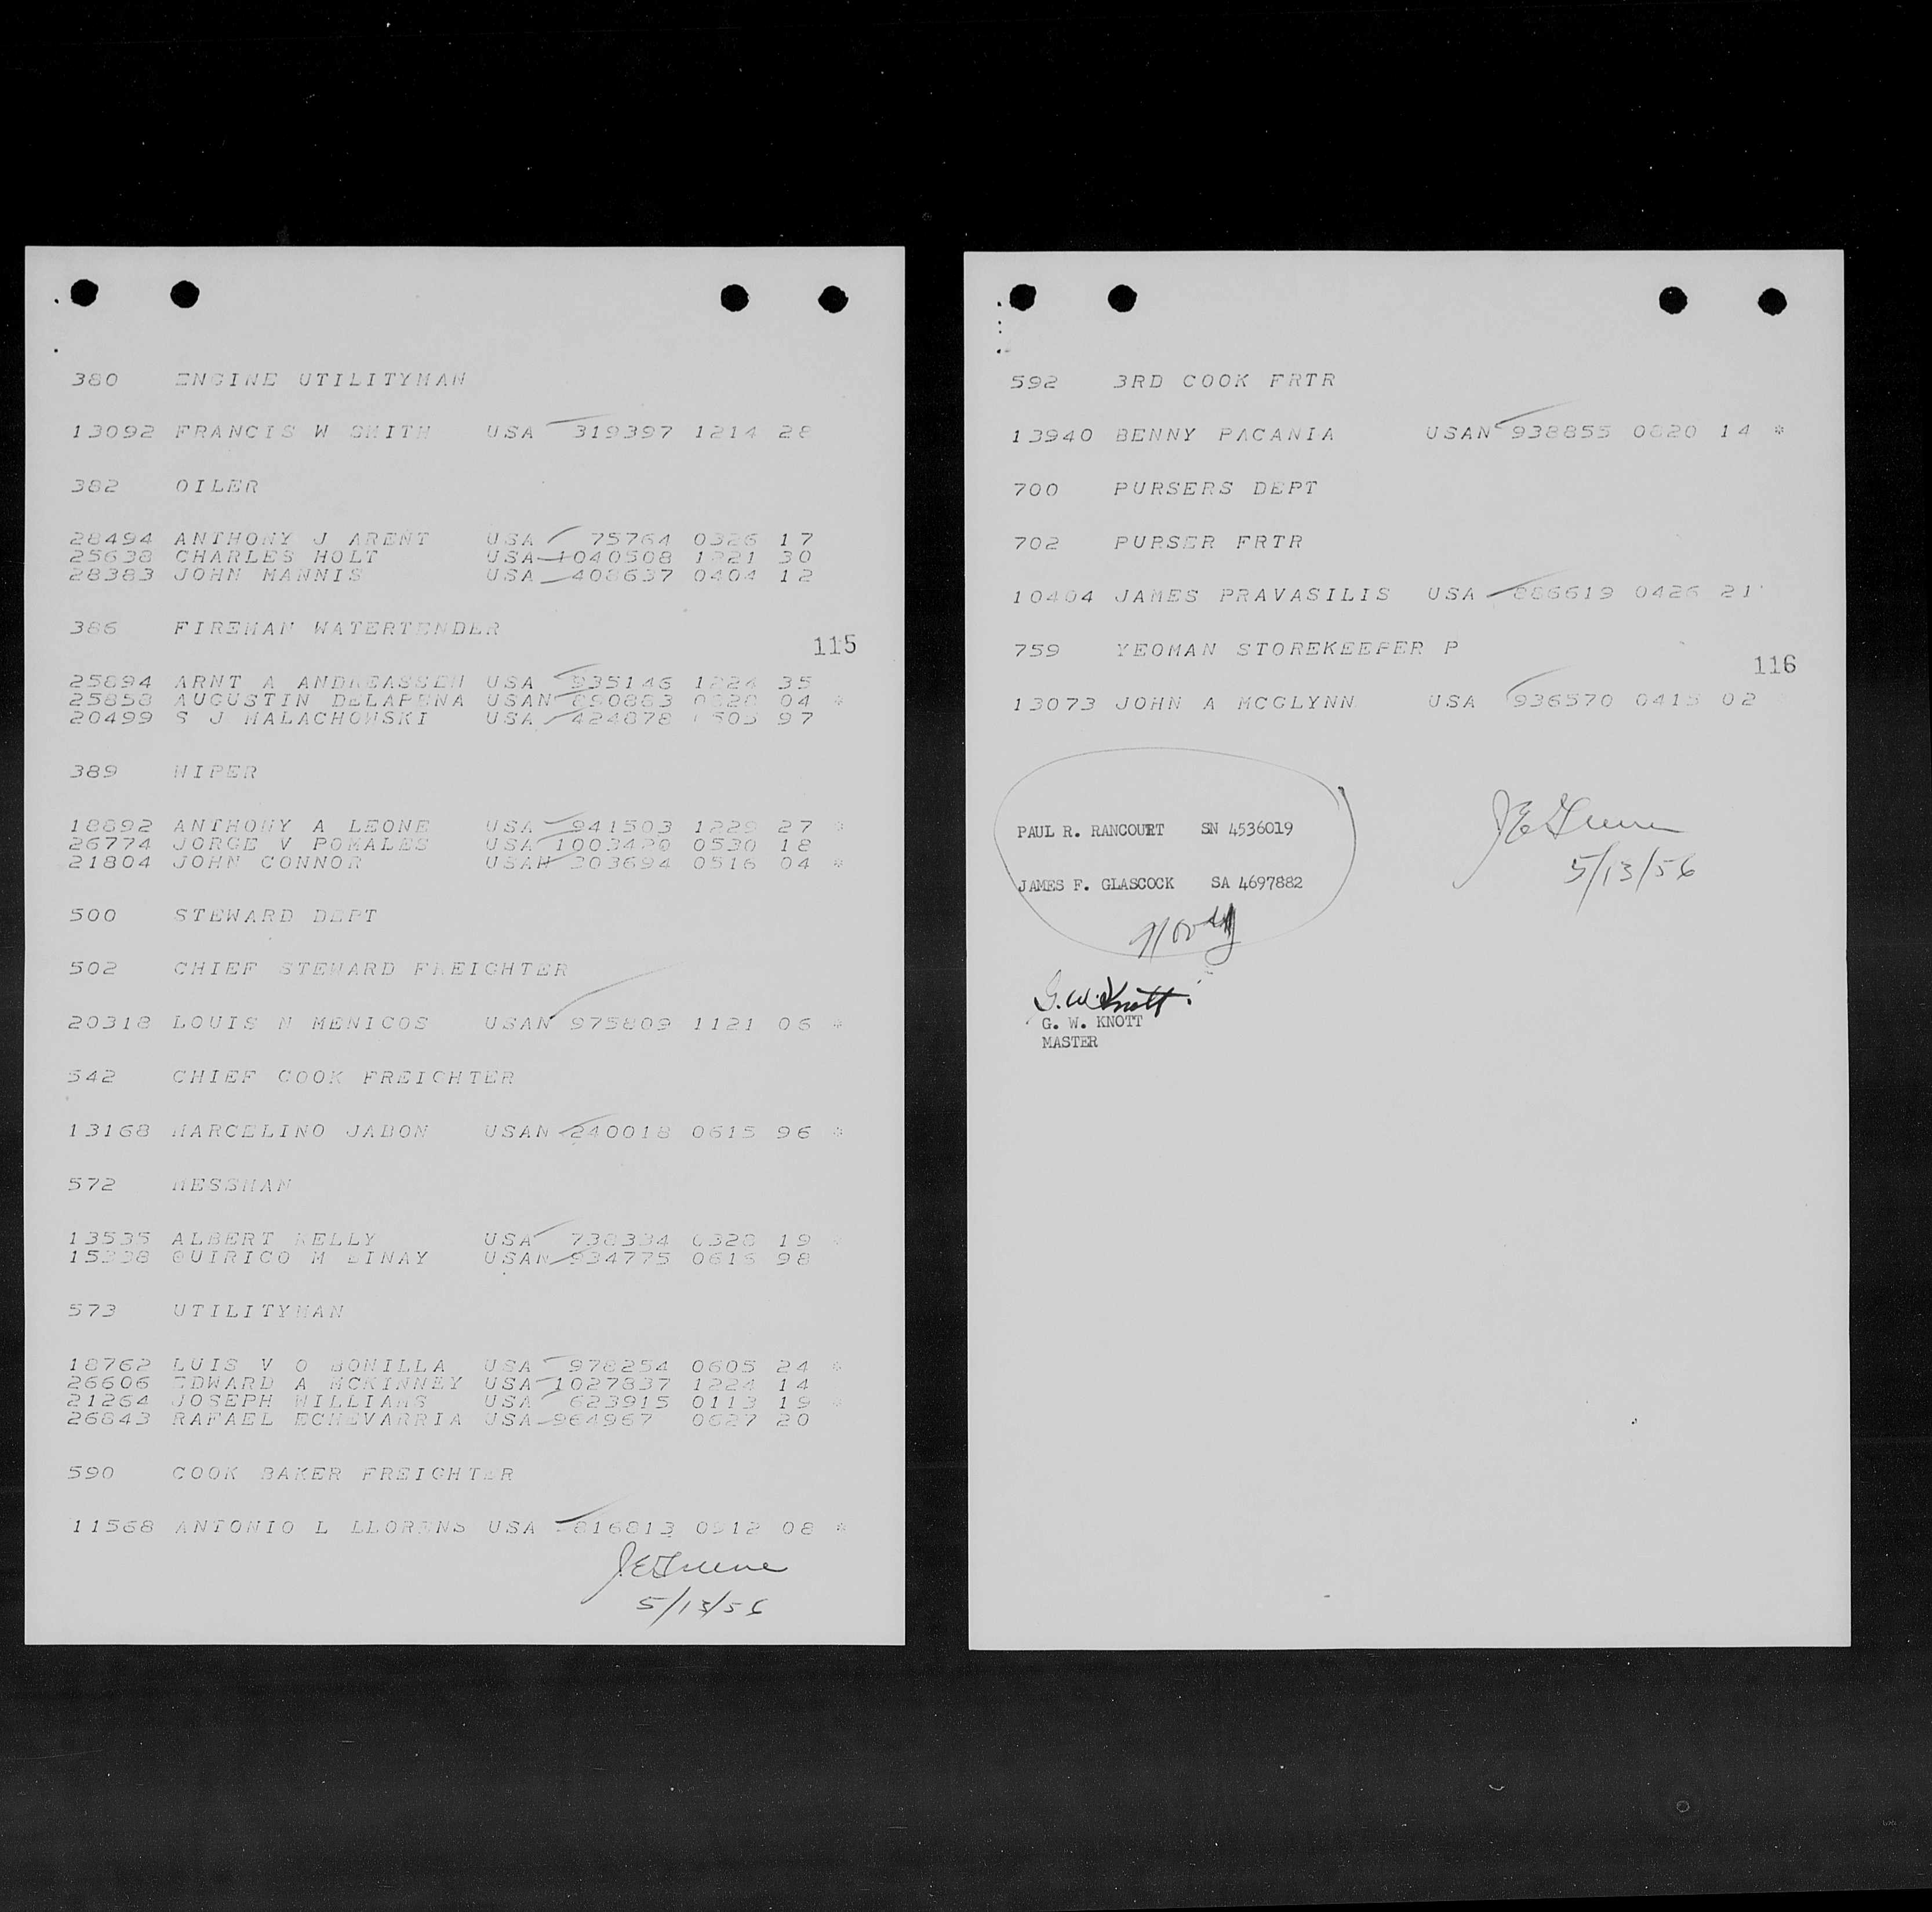 380 ENGINE UTILITYMAN
13092 FRANCIS W SMITH USA 319397 1214 28
382 OILER
28494 ANTHONY J ARENT USA 75764 0326 17
25638 CHARLES HOLT USA 1040508 1221 30
28383 JOHN MANNIS USA 408637 0404 12
386 FIREMAN WATERTENDER
115
25894 ARNT A ANDREASSEN USA 935146 1224 35
25858 AUGUSTIN DELAPENA USAN 04 *
20499 S J MALACHOWSKI USA 424878 97
389 WIPER
18892 ANTHONY A LEONE USA 941503 1229 27 *
26774 JORGE V POMALES USA 1003420 0530 18
21804 JOHN CONNOR USAN 303694 0516 04 *
500 STEWARD DEPT
502 CHIEF STEWARD FREIGHTER
20318 LOUIS N MENICOS USAN 975809 1121 06 *
542 CHIEF COOK FREIGHTER
13168 MARCELINO JABON USAN 240018 0615 96 *
572 MESSMAN
13535 ALBERT KELLY USA 738334 0328 19 *
QUIRICO M USAN 934775 0616 98
573 UTILITYMAN
18762 LUIS V O BONILLA USA 978254 0605 24 *
26606 EDWARD A MCKINNEY USA 1027837 1224 14
21264 JOSEPH WILLIAMS USA 623915 0113 19 *
26843 RAFAEL ECHEVARRIA USA 964967 0627 20
590 COOK BAKER FREIGHTER
11568 ANTONIO L LLORENS USA 816813 0912 08 *
5/13/56
592 3RD COOK FRTR
13940 BENNY PACANIA USAN 938855 0820 14 *
700 PURSERS DEPT
702 PURSER FRTR
10404 JAMES PRAVASILIS USA 886619 0426 21
759 YEOMAN STOREKEEPER P
116
13073 JOHN A MCGLYNN USA 936570 0415 02
PAUL R. RANCOURT SN 4536019
JAMES F. GLASCOCK SA 4697882
5/13/56
G. W. Knott
G. W. KNOTT
MASTER